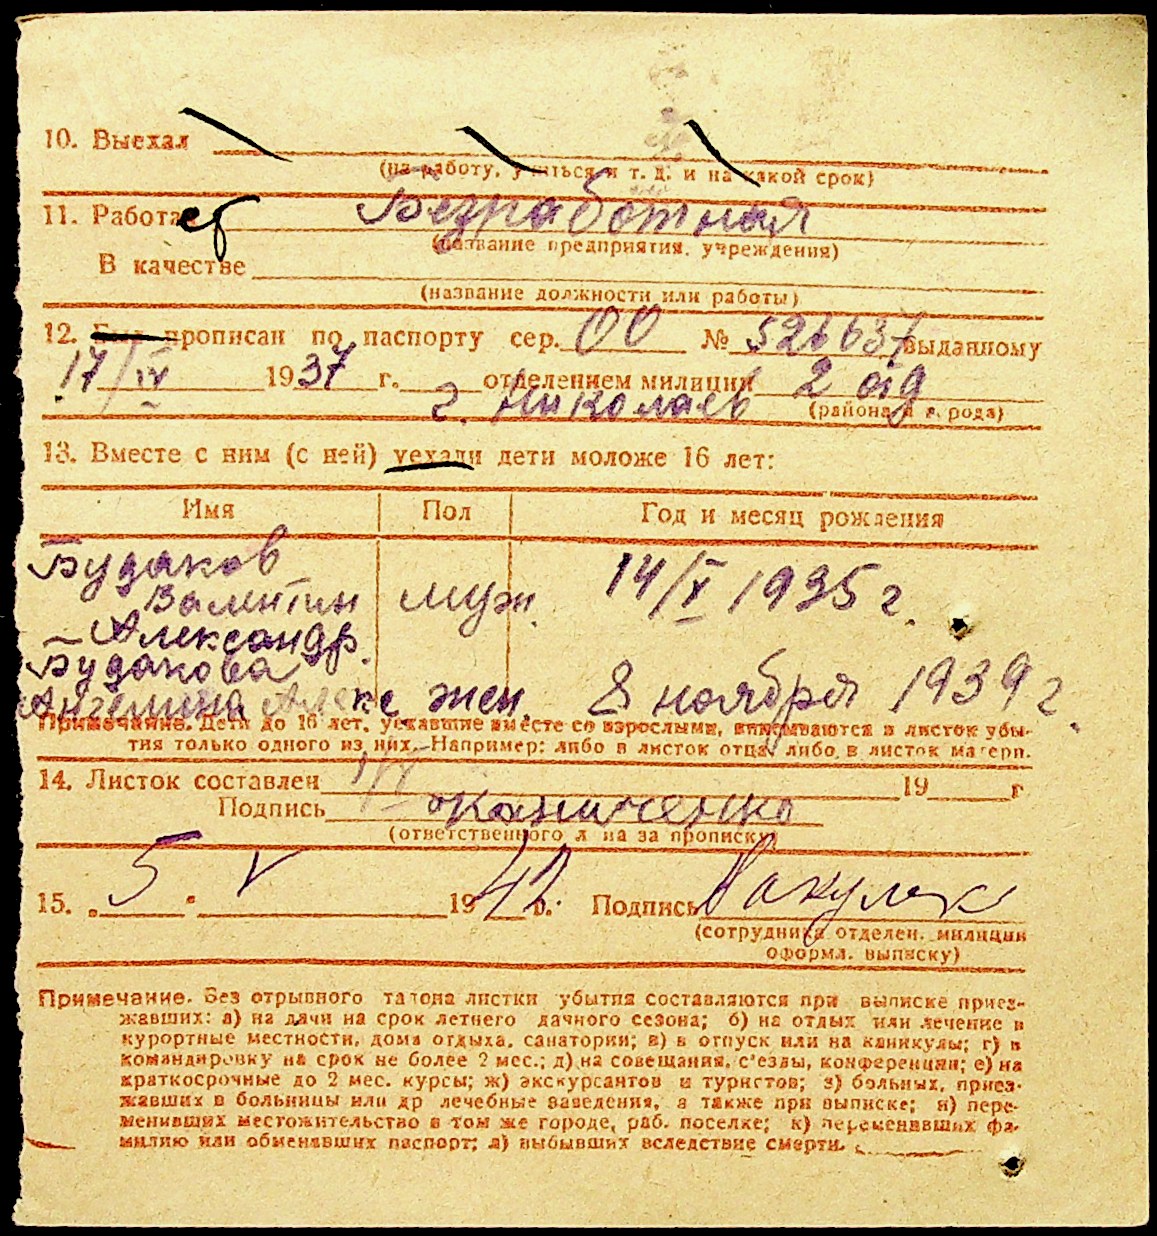 10. Выехал
(на работу, учиться и т. д. и на какой срок)
11. Работает Безработная
(название предприятия, учреждения)
В качестве
(название должности или работы)
12. Был прописан по паспорту сер. 00 № 526637 выданному
17/IV 1937 г. отделением милиции 2 отд
г. Николаев (района и города)
13. Вместе с ним (с ней) уехали дети моложе 16 лет:
Имя Пол Год и месяц рождения
Будаков
Валентин муж. 14/X 1935 г.
Александр.
Будакова
Ангелина Алекс жен. 8 ноября 1939 г.
Примечание. Дети до 16 лет, уехавшие вместе со взрослыми, вписываются в листок убы-
тия только одного из них. Например: либо в листок отца, либо в листок матери.
14. Листок составлен 19 г
Подпись
(ответственного лица за прописку)
15. 5 V 1942 г. Подпись
(сотрудника отделен. милиции
оформл. выписку)
Примечание. Без отрывного талона листки убытия составляются при выписке приез-
жавших: а) на дачи на срок летнего дачного сезона; б) на отдых или лечение в
курортные местности, дома отдыха, санатории; в) в отпуск или на каникулы; г) в
командировку на срок не более 2 мес.; д) на совещания, с'езды, конференции; е) на
краткосрочные до 2 мес. курсы; ж) экскурсантов и туристов; з) больных, приез-
жавших в больницы или др лечебные заведения, а также при выписке; и) пере-
менивших местожительство в том же городе, раб. поселке; к) переменивших фа-
милию или обменявших паспорт; л) выбывших вследствие смерти.